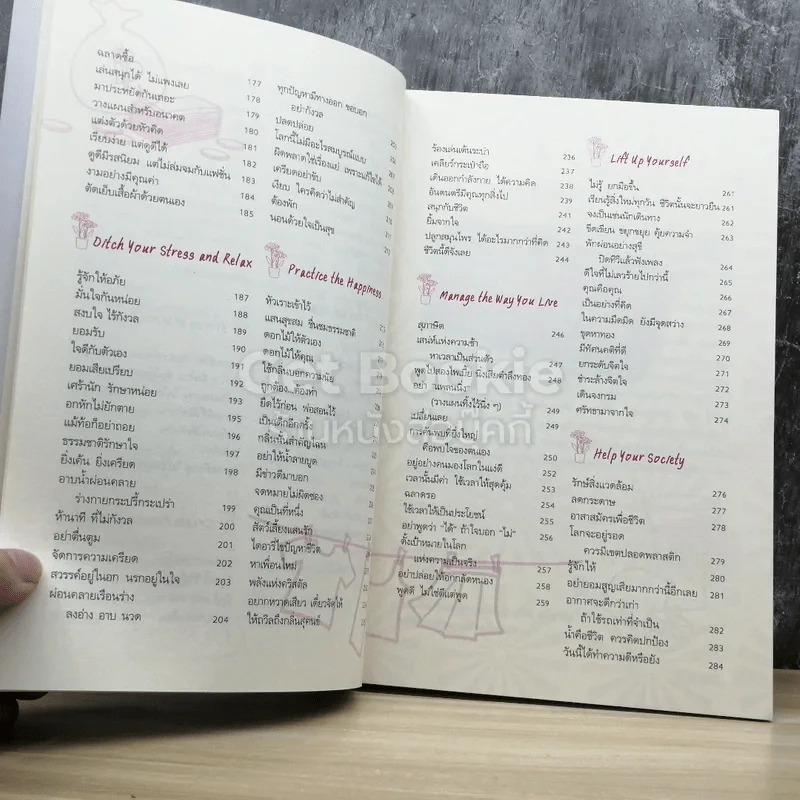 ฉลาดซื้อ
เล่นสนุกได้ ไม่แพงเลย 177
มาประหยัดกันเถอะ 178
วางแผนสำหรับอนาคต 179
แต่งตัวด้วยหัวคิด 180
เรียบง่าย แต่ดูดีได้ 181
ดูดีมีรสนิยม แต่ไม่ล่มจมกับแฟชั่น 182
งามอย่างมีคุณค่า 183
ตัดเย็บเสื้อผ้าด้วยตนเอง 184
185
Ditch Your Stress and Relax
รู้จักให้อภัย 187
มั่นใจกันหน่อย 188
สงบใจ ไร้กังวล 189
ยอมรับ 190
ใจดีกับตัวเอง 191
ยอมเสียเปรียบ 192
เศร้านัก รักษาหน่อย 193
อกหักไม่ยักตาย 194
แม้ท้อก็อย่าถอย 195
ธรรมชาติรักษาใจ 196
ยิ่งเค้น ยิ่งเครียด 197
อาบน้ำผ่อนคลาย 198
ร่างกายกระปรี้กระเปร่า 199
ห้านาที ที่ไม่กังวล 200
อย่าตื่นตูม 201
จัดการความเครียด 202
สวรรค์อยู่ในอก นรกอยู่ในใจ 203
ผ่อนคลายเรือนร่าง
ลงอ่าง อาบ นวด 204
ทุกปัญหามีทางออก ขอบอก
อย่ากังวล
ปลดปล่อย
โลกนี้ไม่มีอะไรสมบูรณ์แบบ
ผิดพลาดใช่เรื่องแย่ เพราะแก้ไขได้
เครียดอย่าขับ
เงียบ ใครคิดว่าไม่สำคัญ
ต้องพัก
นอนด้วยใจเป็นสุข
Practice the Happiness
หัวเราะเข้าไว้
แสนสุขสม ชื่นชมธรรมชาติ
ดอกไม้ให้ตัวเอง
ดอกไม้ให้คุณ
ใช้กลิ่นบอกความนัย
ถูกต้อง...ต้องทำ
ยึดไว้ก่อน พ่อสอนไว้
เป็นเด็กอีกครั้ง
กลิ่นนั้นสำคัญไฉน
อย่าให้น้ำลายบูด
มีข่าวดีมาบอก
จดหมายไม่ผิดซอง
คุณเป็นที่หนึ่ง
สัตว์เลี้ยงแสนรัก
ไดอารี่ไขปัญหาชีวิต
หาเพื่อนใหม่
พลังแห่งคริสตัล
อยากหวาดเสียว เดี๋ยวจัดให้
ให้ถวิลถึงกลิ่นสุคนธ์
ร้องเล่นเต้นระบำ 236
เคลียร์กระเป๋าใจ 237
เดินออกกำลังกาย ได้ความคิด 238
อันดนตรีมีคุณทุกสิ่งไป 239
สนุกกับชีวิต 241
ยิ้มจากใจ 242
ปลูกสมุนไพร ได้อะไรมากกว่าที่คิด 243
ชีวิตนี้ดีจังเลย 244
Manage the Way You Live
สุภาษิต 246
เสน่ห์แห่งความช้า
หาเวลาเป็นส่วนตัว 247
พูดไปสองไพเบี้ย นิ่งเสียตำลึงทอง 248
อย่า "แพลนนิ่ง"
(วางแผนทิ้งไว้นิ่ง ๆ) 249
เปลี่ยนเลย
การค้นพบที่ยิ่งใหญ่
คือพบใจของตนเอง 250
อยู่อย่างคนมองโลกในแง่ดี 251
เวลานั้นมีค่า ใช้เวลาให้สุดคุ้ม 252
ฉลาดรอ 253
ใช้เวลาให้เป็นประโยชน์ 254
อย่าพูดว่า "ได้" ถ้าใจบอก "ไม่" 256
ตั้งเป้าหมายในโลก
แห่งความเป็นจริง 257
อย่าปล่อยให้อกกลัดหนอง 258
พูดดี ไม่ใช่ดีแต่พูด 259
Lift Up Yourself
ไม่รู้ ยกมือขึ้น 261
เรียนรู้สิ่งใหม่ทุกวัน ชีวิตนั้นจะยาวยืน 261
จงเป็นเช่นนักเดินทาง 262
ขีดเขียน ขยุกขยุย คุ้ยความจำ 263
พักผ่อนอย่างสุขี
ปิดทีวีแล้วฟังเพลง 264
ดีใจที่ไม่เลวร้ายไปกว่านี้ 265
คุณคือคุณ 266
เป็นอย่างที่คิด 267
ในความมืดมิด ยังมีจุดสว่าง 268
ขุดหาทอง 269
มีทัศนคติที่ดี 270
ยกระดับจิตใจ 271
ชำระล้างจิตใจ 272
เดินจงกรม 273
ศรัทธามาจากใจ 274
Help Your Society
รักษ์สิ่งแวดล้อม 276
ลดกระดาษ 277
อาสาสมัครเพื่อชีวิต 278
โลกจะอยู่รอด
ควรมีเขตปลอดพลาสติก 279
รู้จักให้ 280
อย่ายอมสูญเสียมากกว่านี้อีกเลย 281
อากาศจะดีกว่าเก่า
ถ้าใช้รถเท่าที่จำเป็น 282
น้ำคือชีวิต ควรคิดปกป้อง 283
วันนี้ได้ทำความดีหรือยัง 284
Get Bookie
ร้านหนังสือบุ๊คกี้